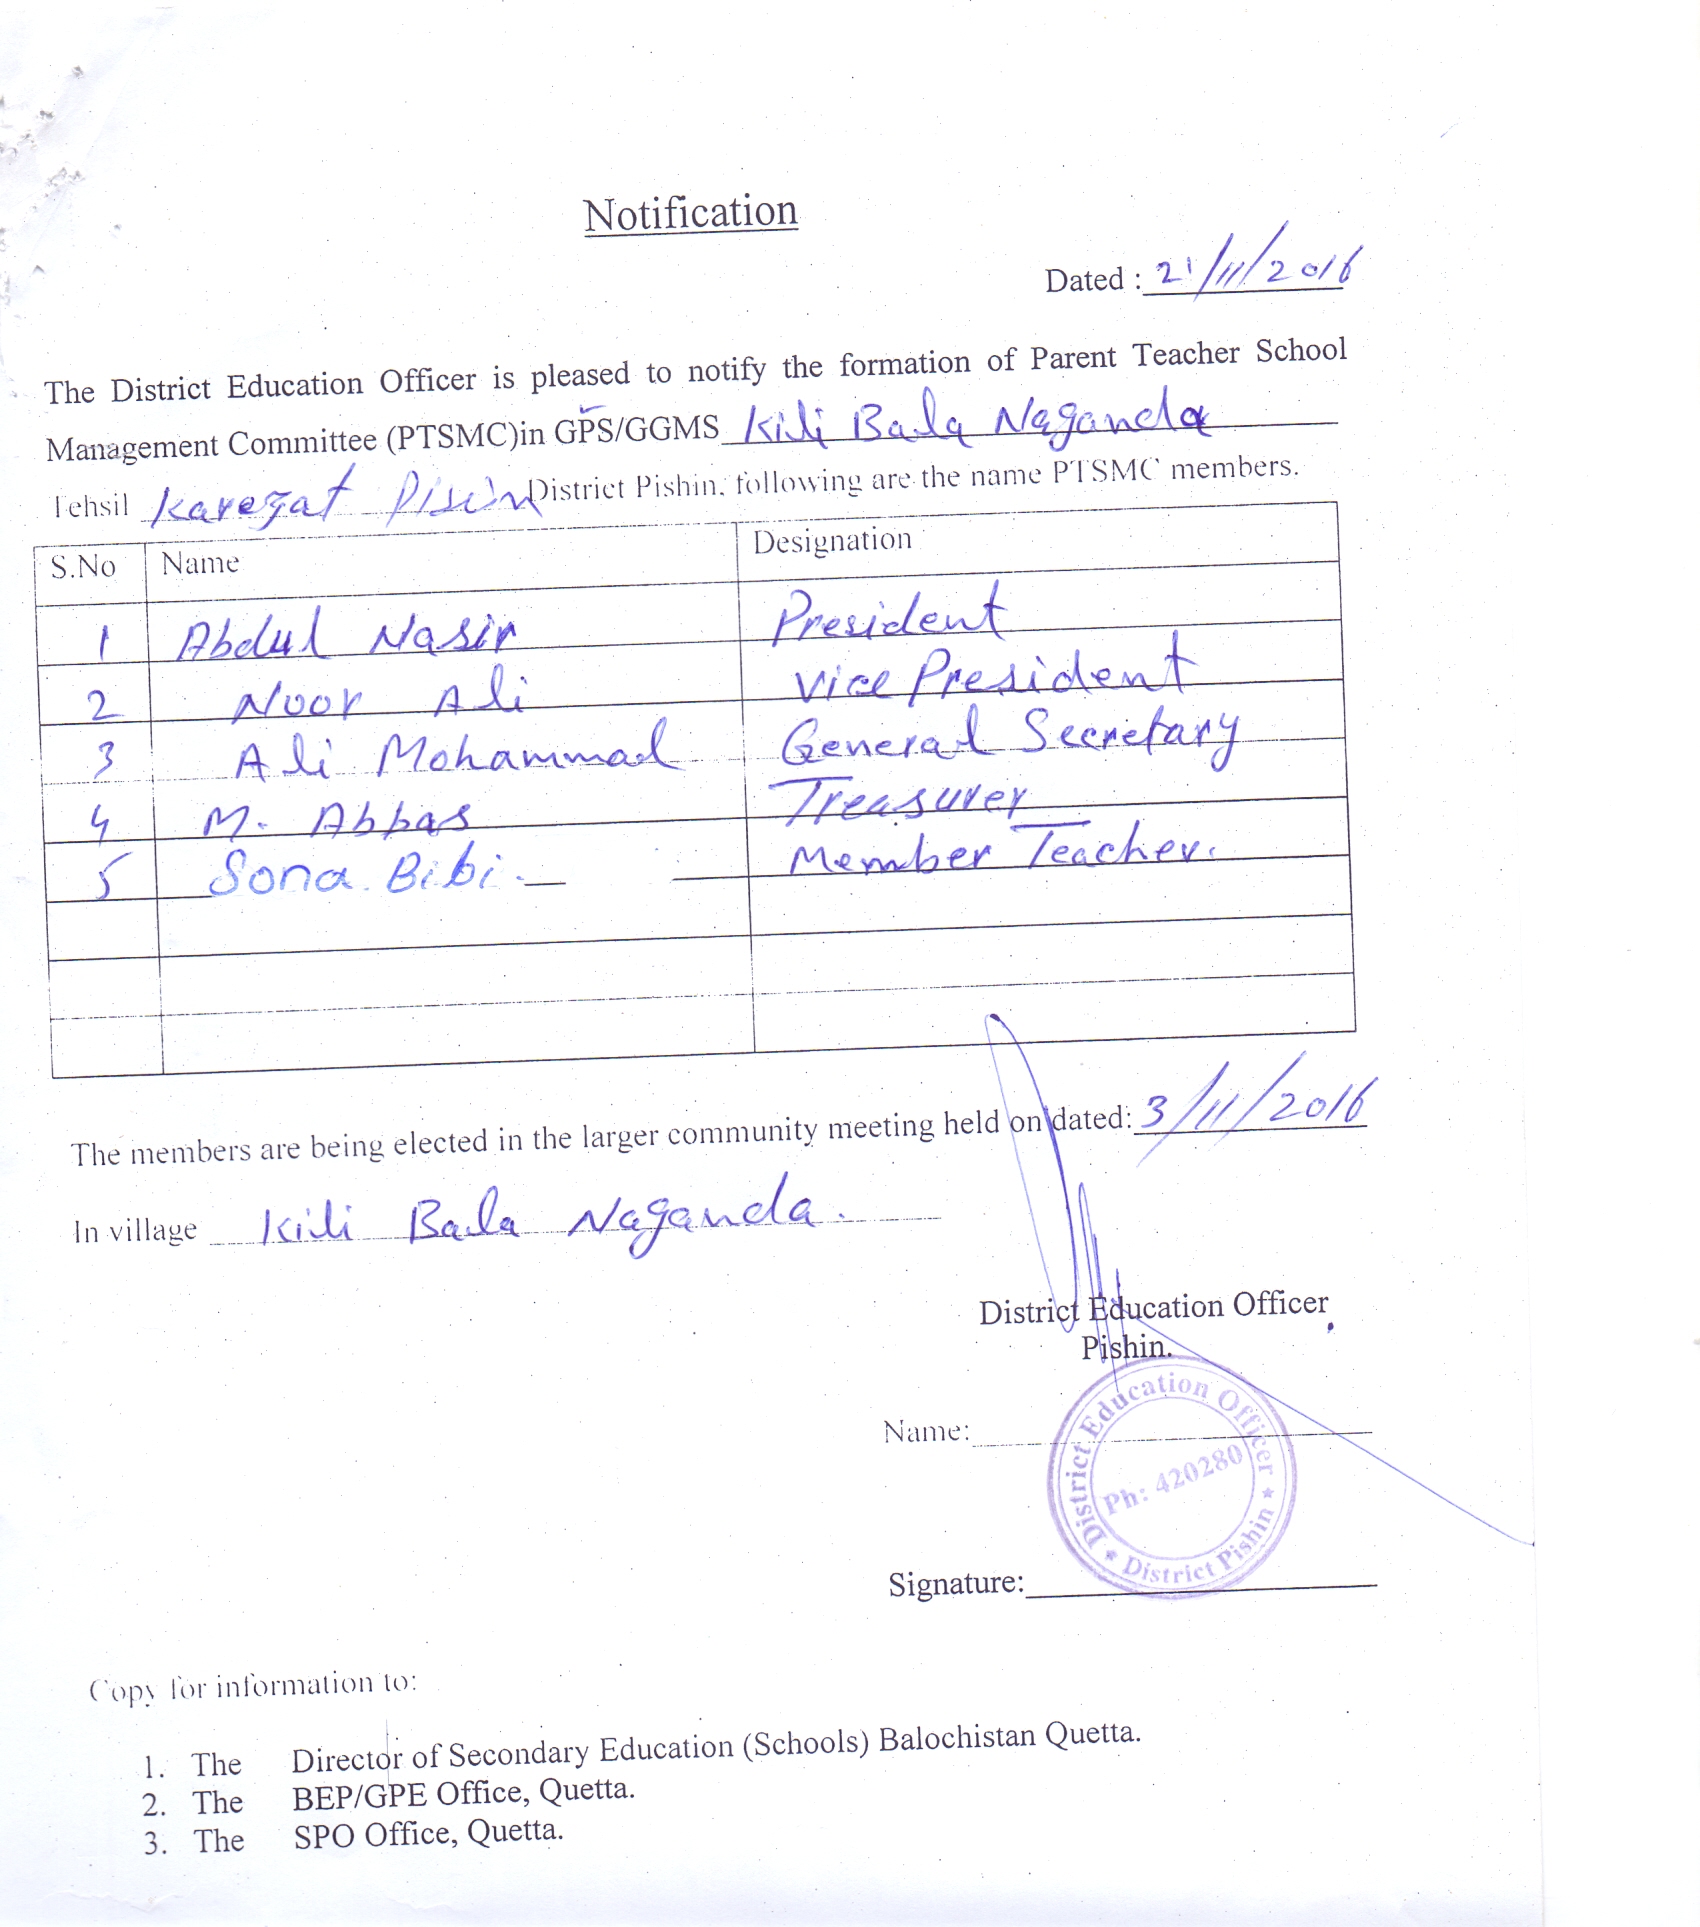 Notification
Dated : 21/11/2016
The District Education Officer is pleased to notify the formation of Parent Teacher School
Management Committee (PTSMC)in GPS/GGMS Kili Bala Naganda
Tehsil Karezat Pisin District Pishin, following are the name PTSMC members.
S.No Name Designation
1 Abdul Nasir President
2 Noor Ali Vice President
3 Ali Mohammad General Secretary
4 M. Abbas Treasurer
5 Sona Bibi. Member Teacher.
The members are being elected in the larger community meeting held on dated: 3/11/2016
In village Kili Bala Naganda.
District Education Officer
Pishin.
Name:
District Education Officer
Ph: 420280
* District Pishin *
Signature:
Copy for information to:
1. The Director of Secondary Education (Schools) Balochistan Quetta.
2. The BEP/GPE Office, Quetta.
3. The SPO Office, Quetta.